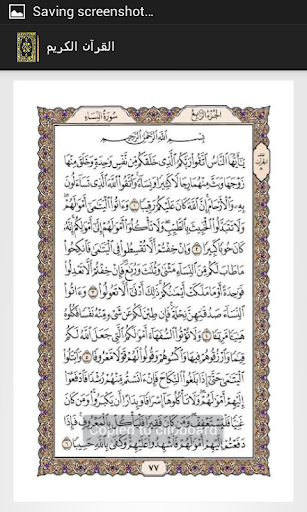 Saving screenshot...
القرآن الكريم
سُورَةُ النِّسَاءِ
الجُزْءُ الرَّابِعُ
بِسْمِ اللَّهِ الرَّحْمَٰنِ الرَّحِيمِ
يَٰٓأَيُّهَا ٱلنَّاسُ ٱتَّقُوا۟ رَبَّكُمُ ٱلَّذِى خَلَقَكُم مِّن نَّفْسٍ وَٰحِدَةٍ وَخَلَقَ مِنْهَا
زَوْجَهَا وَبَثَّ مِنْهُمَا رِجَالًا كَثِيرًا وَنِسَآءً وَٱتَّقُوا۟ ٱللَّهَ ٱلَّذِى تَسَآءَلُونَ
بِهِۦ وَٱلْأَرْحَامَ إِنَّ ٱللَّهَ كَانَ عَلَيْكُمْ رَقِيبًا ١ وَءَاتُوا۟ ٱلْيَتَٰمَىٰٓ أَمْوَٰلَهُمْ
وَلَا تَتَبَدَّلُوا۟ ٱلْخَبِيثَ بِٱلطَّيِّبِ وَلَا تَأْكُلُوٓا۟ أَمْوَٰلَهُمْ إِلَىٰٓ أَمْوَٰلِكُمْ إِنَّهُۥ
كَانَ حُوبًا كَبِيرًا ٢ وَإِنْ خِفْتُمْ أَلَّا تُقْسِطُوا۟ فِى ٱلْيَتَٰمَىٰ فَٱنكِحُوا۟
مَا طَابَ لَكُم مِّنَ ٱلنِّسَآءِ مَثْنَىٰ وَثُلَٰثَ وَرُبَٰعَ فَإِنْ خِفْتُمْ أَلَّا تَعْدِلُوا۟
فَوَٰحِدَةً أَوْ مَا مَلَكَتْ أَيْمَٰنُكُمْ ذَٰلِكَ أَدْنَىٰٓ أَلَّا تَعُولُوا۟ ٣ وَءَاتُوا۟
ٱلنِّسَآءَ صَدُقَٰتِهِنَّ نِحْلَةً فَإِن طِبْنَ لَكُمْ عَن شَىْءٍ مِّنْهُ نَفْسًا فَكُلُوهُ
هَنِيٓـًٔا مَّرِيٓـًٔا ٤ وَلَا تُؤْتُوا۟ ٱلسُّفَهَآءَ أَمْوَٰلَكُمُ ٱلَّتِى جَعَلَ ٱللَّهُ لَكُمْ
قِيَٰمًا وَٱرْزُقُوهُمْ فِيهَا وَٱكْسُوهُمْ وَقُولُوا۟ لَهُمْ قَوْلًا مَّعْرُوفًا ٥ وَٱبْتَلُوا۟
ٱلْيَتَٰمَىٰ حَتَّىٰٓ إِذَا بَلَغُوا۟ ٱلنِّكَاحَ فَإِنْ ءَانَسْتُم مِّنْهُمْ رُشْدًا فَٱدْفَعُوٓا۟
إِلَيْهِمْ أَمْوَٰلَهُمْ وَلَا تَأْكُلُوهَآ إِسْرَافًا وَبِدَارًا أَن يَكْبَرُوا۟ وَمَن كَانَ
غَنِيًّا فَلْيَسْتَعْفِفْ وَمَن كَانَ فَقِيرًا فَلْيَأْكُلْ بِٱلْمَعْرُوفِ فَإِذَا
دَفَعْتُمْ إِلَيْهِمْ أَمْوَٰلَهُمْ فَأَشْهِدُوا۟ عَلَيْهِمْ وَكَفَىٰ بِٱللَّهِ حَسِيبًا ٦
Copied to clipboard
٧٧